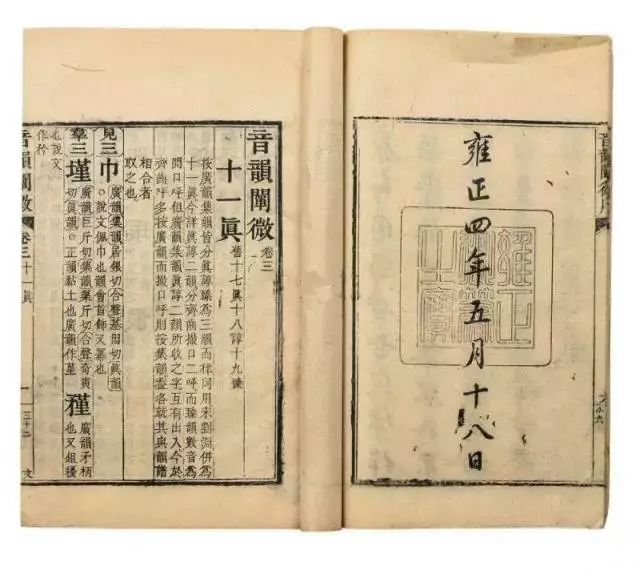 音韻闡微序
六
雍正四年五月十八日
雍正
御筆
之寶
音韻闡微 卷三
十一眞 舊十七眞十八諄十九臻
按廣韻集韻皆分眞諄臻爲三韻而律同用宋劉淵併爲
十一眞今詳眞諄二韻分齊齒撮口二呼而臻韻數音爲
開口呼但廣韻集韻眞諄二韻所收之字互有出入今於
齊齒呼多按廣韻而撮口呼則按集韻查各就其與韻譜
相合者
取之也
見三巾 廣韻集韻居銀切合聲基因切眞韻
○說文佩巾也韻會首飾又冪也
羣三墐 廣韻巨斤切集韻渠斤切合聲奇寅
切眞韻○正韻黏土也廣韻作墓
䅔 廣韻矛柄
也又鉏穫
也說文
作矜
音韻闡微 卷三 十一眞 一 三十二 文